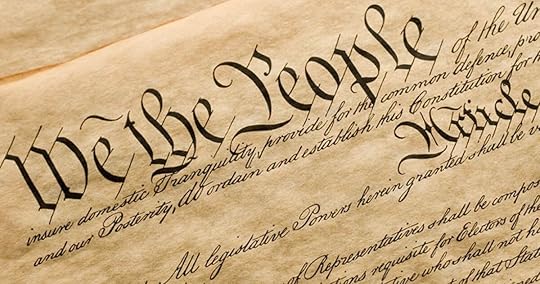 We the People of the Un
insure domestic Tranquility, provide for the common defence, pro
and our Posterity, do ordain and establish this Constitution for th
Article
All legislative Powers herein granted shall be ve
of Representatives shall be compos
tions requisite for Electors of the
tive who shall not ha
of that State